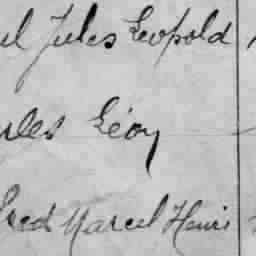 ul Jules Léopold
rles Léon
fred Marcel Henri